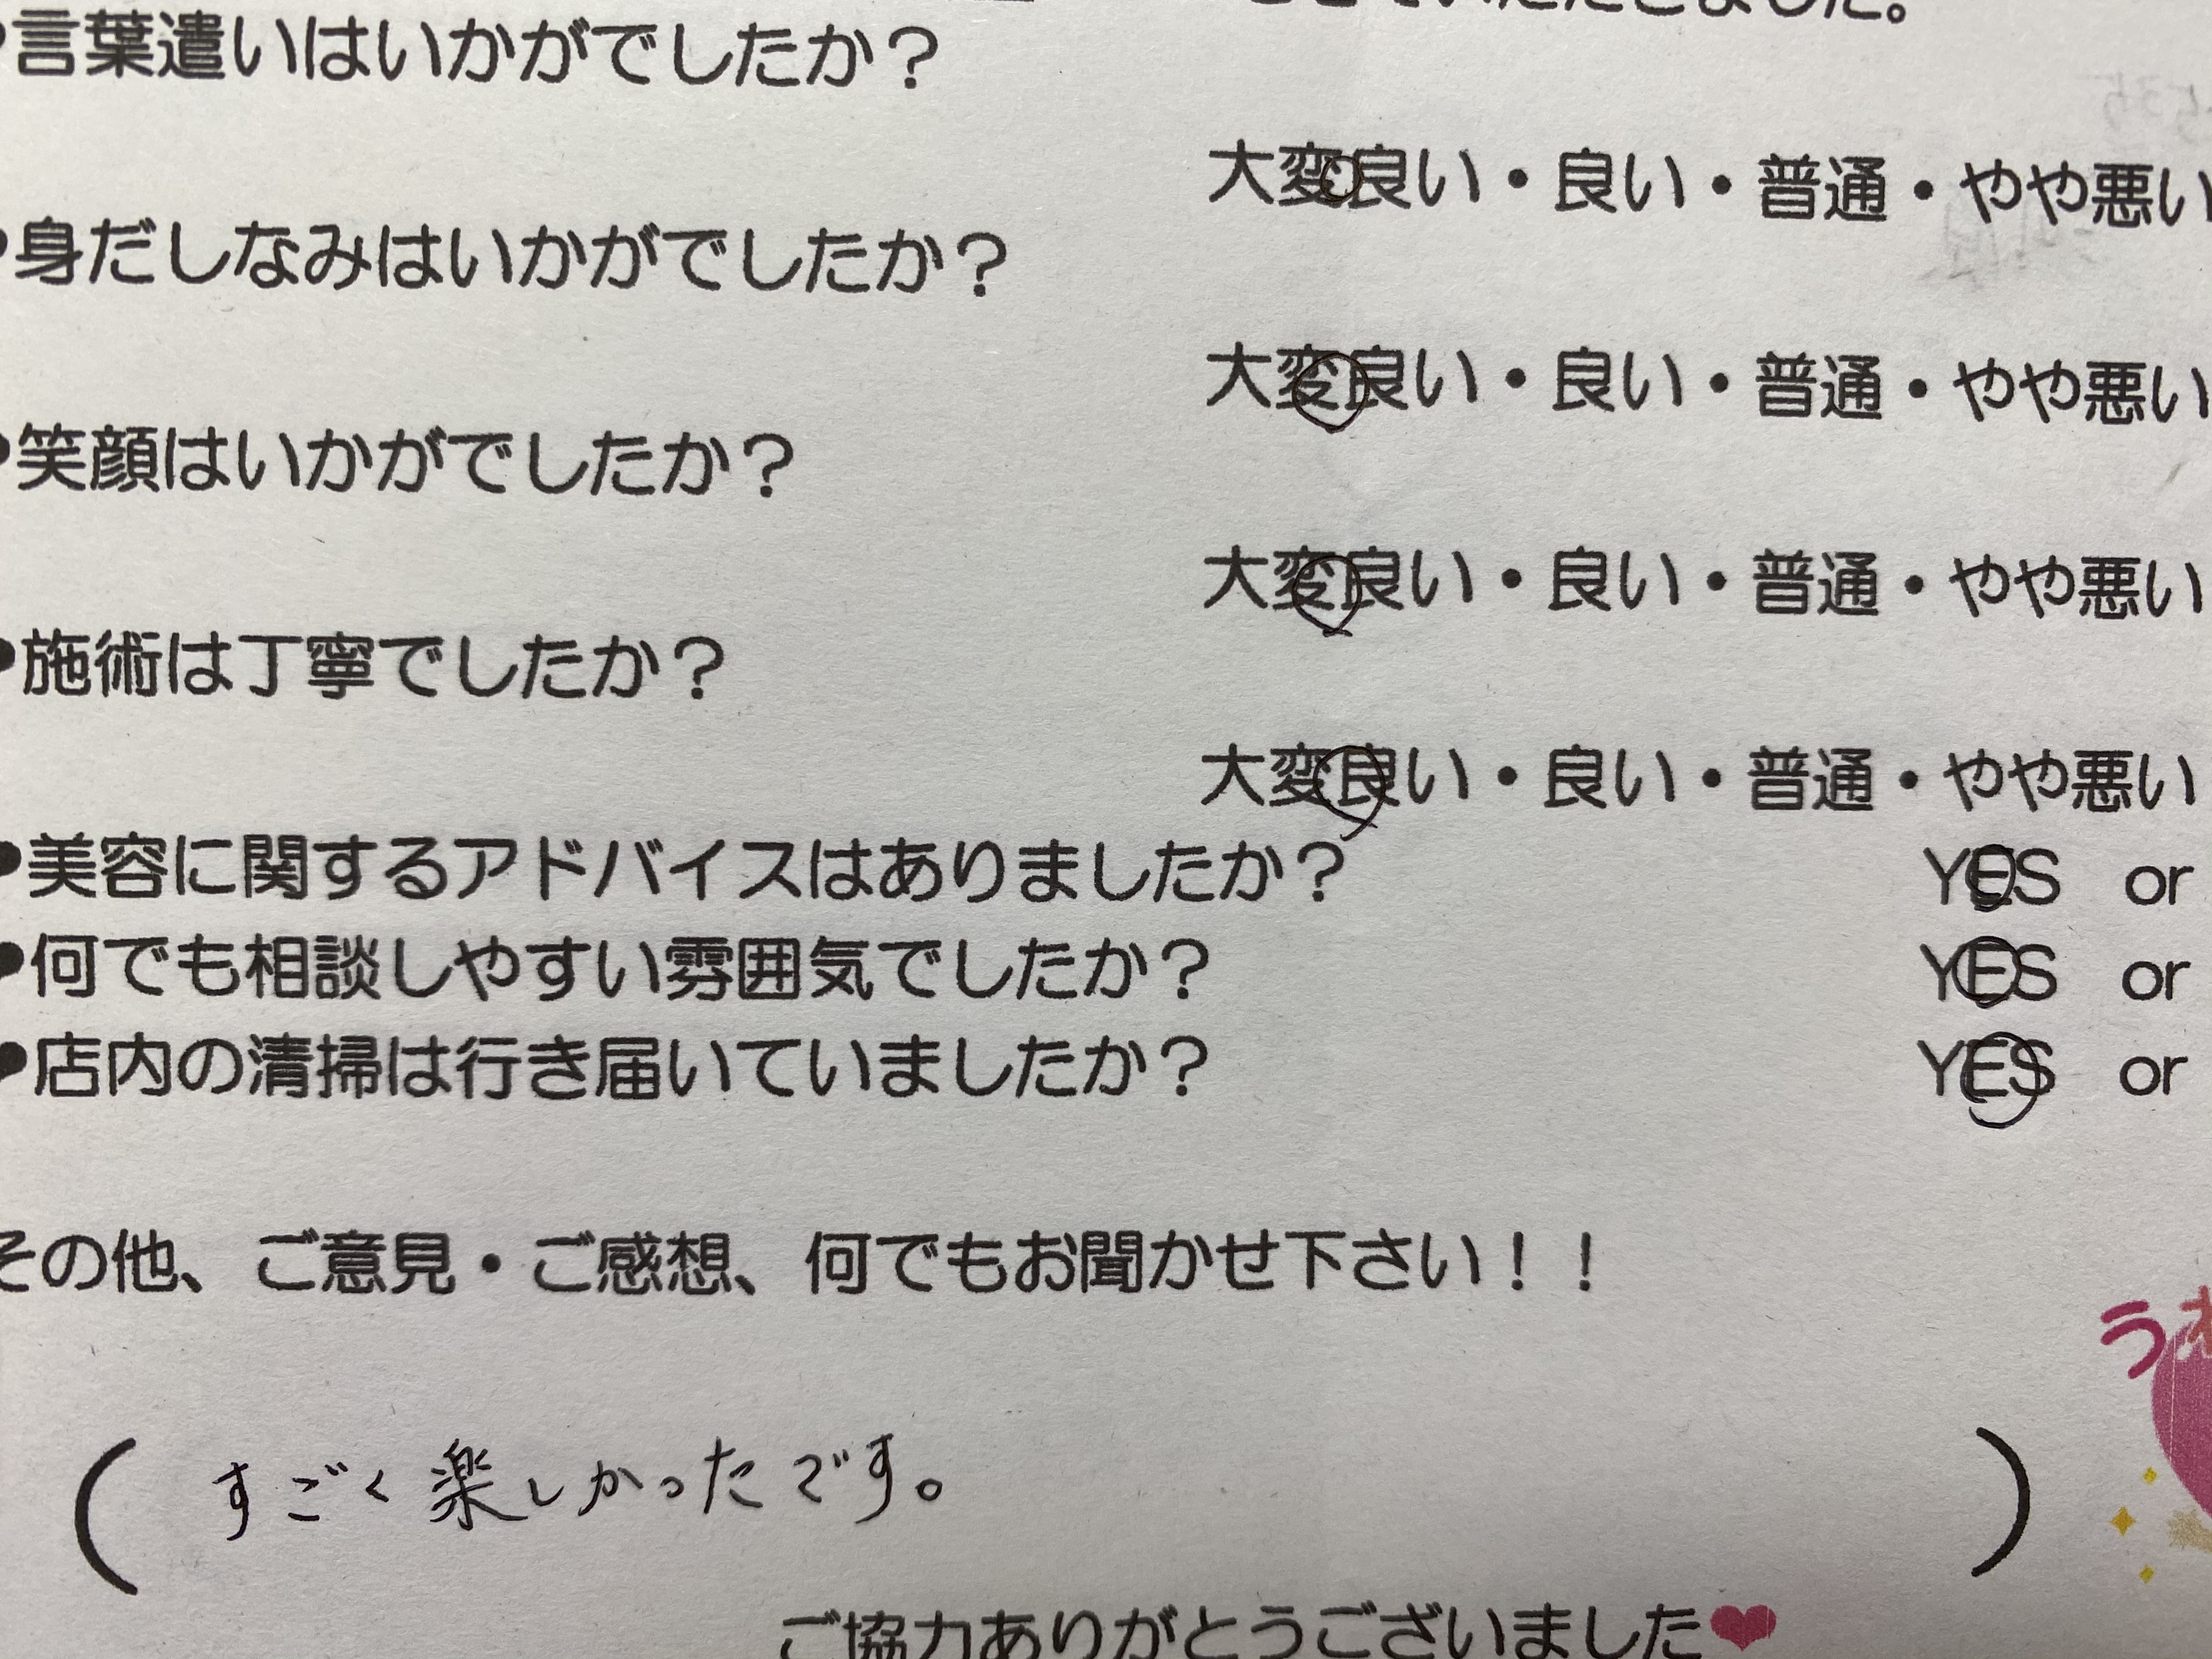 言葉遣いはいかがでしたか？
大変良い・良い・普通・やや悪い
身だしなみはいかがでしたか？
大変良い・良い・普通・やや悪い
笑顔はいかがでしたか？
大変良い・良い・普通・やや悪い
施術は丁寧でしたか？
大変良い・良い・普通・やや悪い
美容に関するアドバイスはありましたか？ YES or
何でも相談しやすい雰囲気でしたか？ YES or
店内の清掃は行き届いていましたか？ YES or
その他、ご意見・ご感想、何でもお聞かせ下さい！！
う
( すごく楽しかったです。 )
ご協力ありがとうございました❤